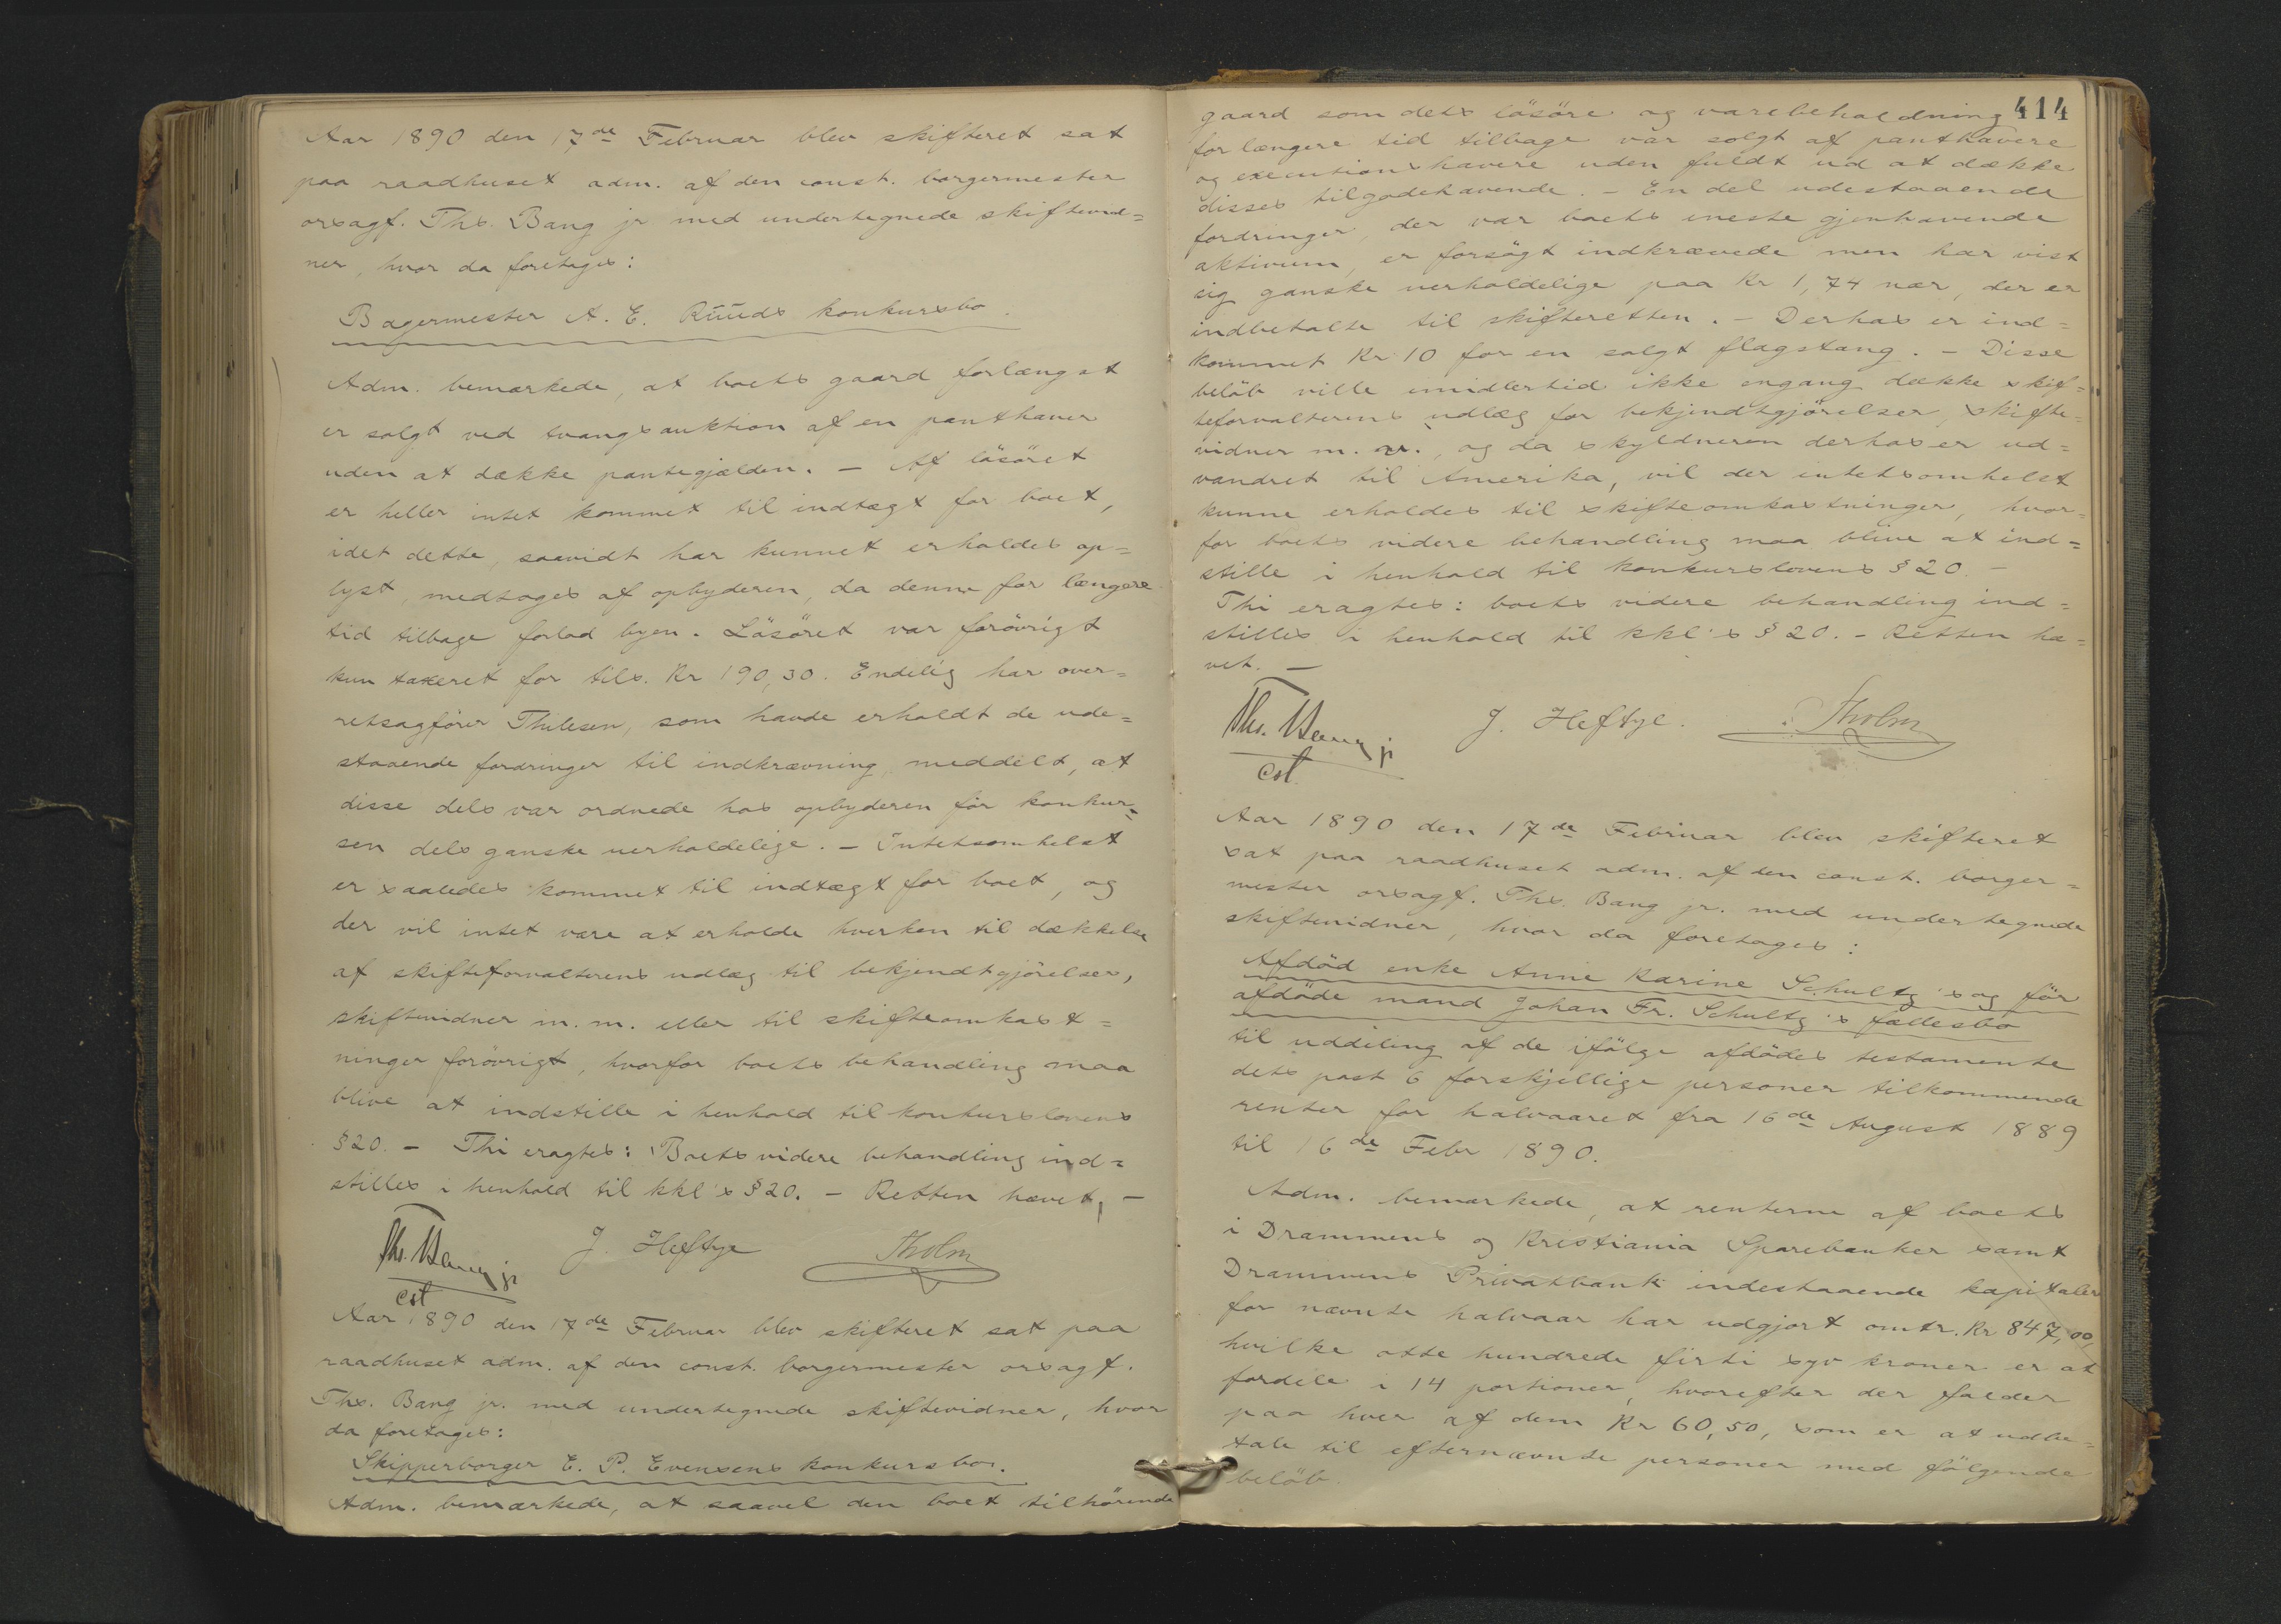 Aar 1890 den 17de Februar blev skifteret sat
paa raadhuset adm. af den const. borgermester
orsagf. Ths. Bang jr med undertegnede skiftevid=
ner, hvor da foretoges:
Bagermester A. E. Ruuds konkursbo.
Adm. bemærkede, at boets gaard forlængst
er solgt ved tvangsauktion af en panthaver
uden at dække pantegjælden. – Af løsøret
er heller intet kommet til indtægt for boet,
idet dette, saavidt har kunnet erholdes op=
lyst, medtoges af opbyderen, da denne for længere
tid tilbage forlod byen. Løsøret var forøvrigt
kun taxeret for tils. Kr 190,30. Endelig har over=
retsagfører Thilesen, som havde erholdt de ude=
staaende fordringer til indkrævning, meddelt, at
disse dels var ordnede hos opbyderen før konkur=
sen dels ganske uerholdelige. – Intetsomhelst
er saaledes kommet til indtægt for boet, og
der vil intet være at erholde hverken til dækkelse
af skifteforvalterens udlæg til bekjendtgjørelser,
skiftevidner m. m. eller til skifteomkost=
ninger forøvrigt, hvorfor boets behandling maa
blive at indstille i henhold til konkurslovens
§ 20. – Thi eragtes: Boets videre behandling ind=
stilles i henhold til kkl's § 20. – Retten hævet. –
Ths. Bang jr
cst
J. Heftye
Tholm
Aar 1890 den 17de Februar blev skifteret sat paa
raadhuset adm. af den const. borgermester orsagf.
Ths. Bang jr. med undertegnede skiftevidner, hvor
da foretoges:
Skipperborger E. P. Evensens konkursbo.
Adm. bemærkede, at saavel den boet tilhørende
414
gaard som dets løsøre og varebeholdning
for længere tid tilbage var solgt af panthavere
og executionshavere uden fuldt ud at dække
disses tilgodehavende. – En del udestaaende
fordringer, der var boets eneste gjenhavende
aktivum, er forsøgt indkrævede men har vist
sig ganske uerholdelige paa Kr 1,74 nær, der er
indbetalte til skifteretten. – Derhos er ind=
kommet Kr 10 for en solgt flagstang. – Disse
beløb ville imidlertid ikke engang dække skif=
teforvalterens udlæg for bekjendtgjørelser, skifte=
vidner m. m., og da skyldneren derhos er ud=
vandret til Amerika, vil der intetsomhelst
kunne erholdes til skifteomkostninger, hvor=
for boets videre behandling maa blive at ind=
stille i henhold til konkurslovens § 20. –
Thi eragtes: boets videre behandling ind=
stilles i henhold til kkl's § 20. – Retten hæ=
vet. –
Ths. Bang jr
cst.
J. Heftye.
Tholm
Aar 1890 den 17de Februar blev skifteret
sat paa raadhuset adm. af den const. borger=
mester orsagf. Ths. Bang jr. med undertegnede
skiftevidner, hvor da foretoges:
Afdød enke Anne Karine Schultz's og før
afdøde mand Johan Fr. Schultz's fællesbo
til uddeling af de ifølge afdødes testamente
dets post 6 forskjellige personer tilkommende
renter for halvaaret fra 16de August 1889
til 16de Febr 1890.
Adm. bemærkede, at renterne af boets
i Drammens og Kristiania Sparebanker samt
Drammens Privatbank indestaaende kapitaler
for nævnte halvaar har udgjort omtr. Kr 847,00,
hvilke otte hundrede firti syv kroner er at
fordele i 14 portioner, hvorefter der falder
paa hver af dem Kr 60,50, som er at udbe=
tale til efternævnte personer med følgende
beløb.